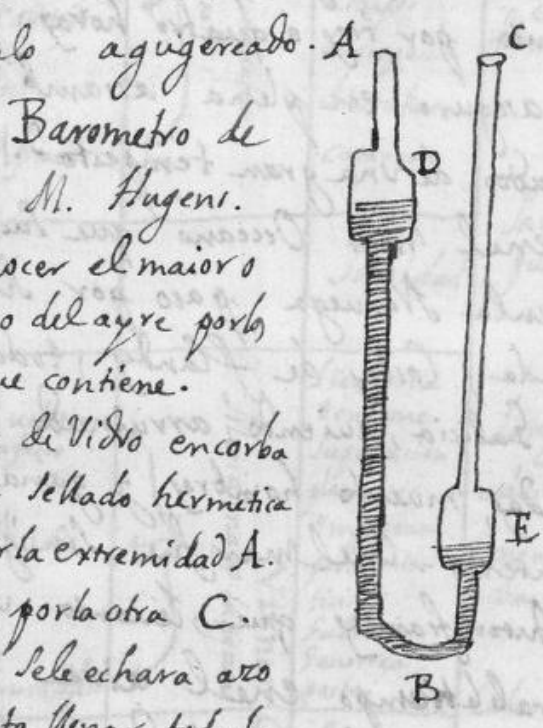 lo agugereado.
Barometro de
M. Hugens.
ocer el maior o
o del ayre porlos
ue contiene.
de Vidro encorba
sellado hermetica
r la extremidad A.
por la otra C.
se le echara azo
A
C
D
E
B